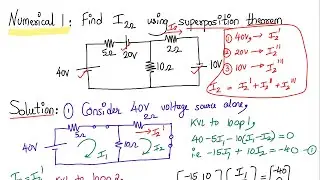 Numerical 1: Find I2Ω using superposition theorem
I2
5Ω 20V 2Ω
40V
10Ω
10V
① 40V, → I2'
② 20V → I2''
③ 10V → I2'''
I2 = I2' + I2'' + I2'''
Solution: ① Consider 40V voltage source alone,
5Ω 2Ω I2'
40V
I1 10Ω I2
KVL to loop 1,
40-5I1-10(I1-I2)=0
i.e -15I1+10I2=-40 -①
KVL to loop 2
[-15 10] [I1] [-40]